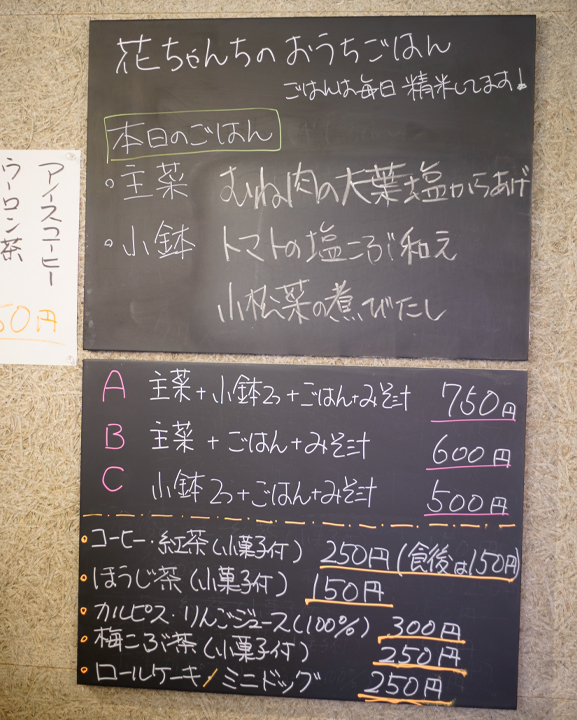 花ちゃんちの おうちごはん
ごはんは毎日 精米してます♪
本日のごはん
・主菜 むね肉の大葉塩からあげ
・小鉢 トマトの塩こぶ和え
小松菜の煮びたし
アイスコーヒー
ウーロン茶
50円
A 主菜+小鉢2つ+ごはん+みそ汁 750円
B 主菜+ごはん+みそ汁 600円
C 小鉢2つ+ごはん+みそ汁 500円
・コーヒー・紅茶(小菓子付) 250円(食後は150円)
・ほうじ茶(小菓子付) 150円
・カルピス・りんごジュース(100%) 300円
・梅こぶ茶(小菓子付) 250円
・ロールケーキ/ミニドッグ 250円